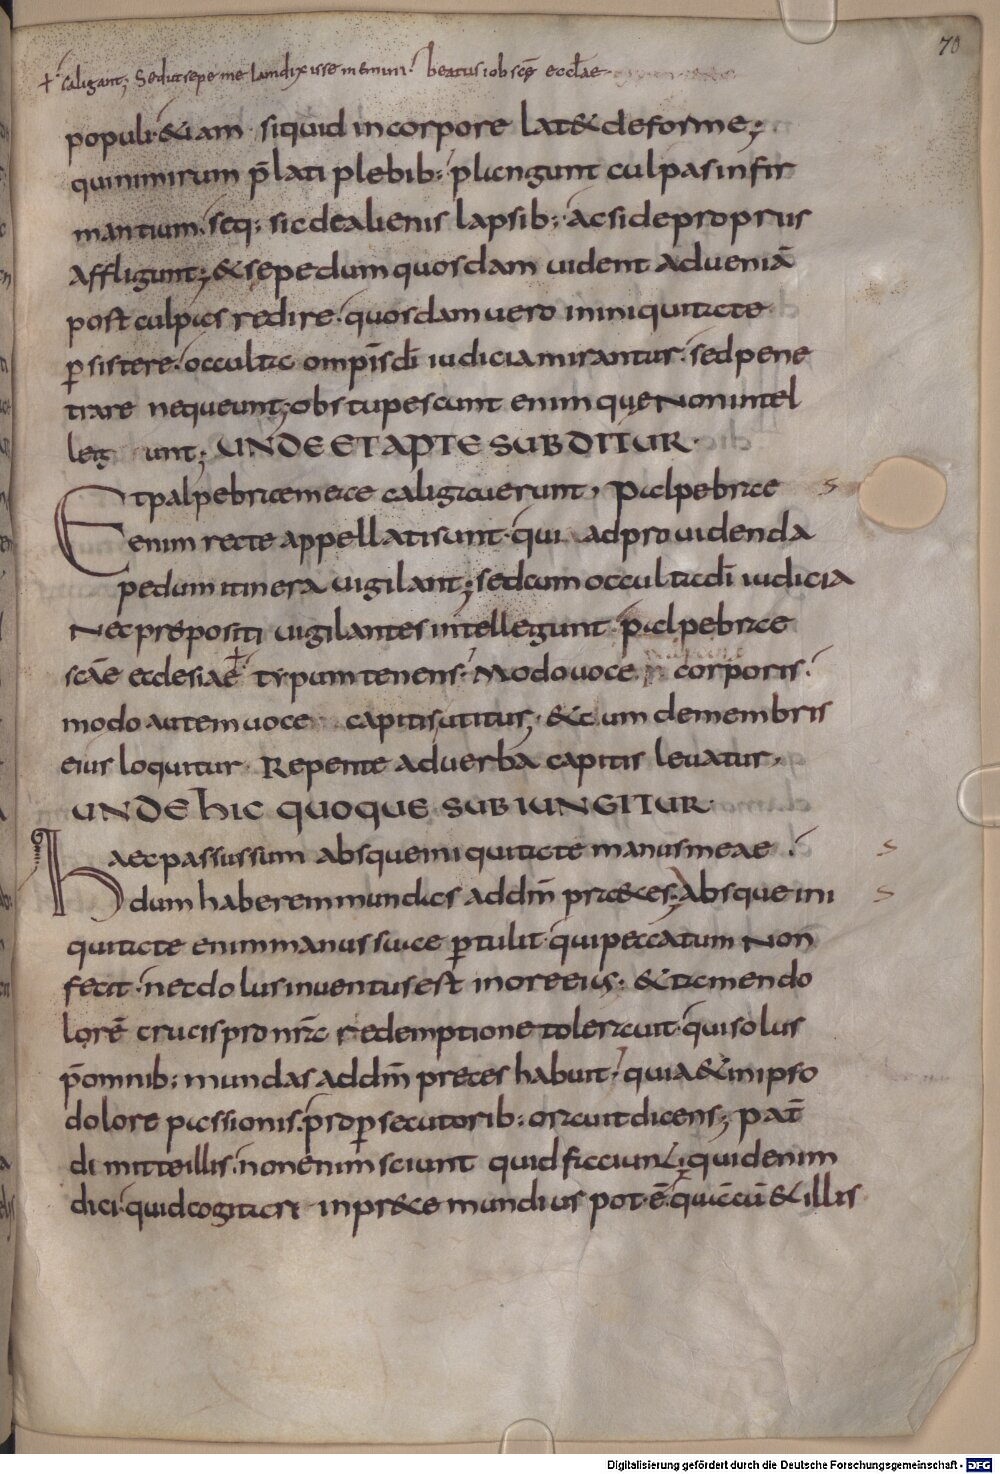 70
+ caligant; Sed ut sepe me iam dixisse memini· beatus iob scę eccłae
populi· &iam siquid incorpore lat& deforme;
quinimirum p̄lati plebib: plangunt culpas infir
mantium· seq: sic dealienis lapsib: acsi depropriis
affligunt; & sepe dum quosdam uident adueniā
post culpas redire· quosdam uero ininiquitate
p̱sistere· occulta omp̄s dī iudicia mirantur· sed pene
trare nequeunt; obstupescunt enim quę non intel
leg unt; UNDE ET APTE SUBDITUR·
Et palpebrae meae caligauerunt, Palpebrae
enim recte appellati sunt· qui ad prouidenda
pedum itinera uigilant; sed cum occulta dī iudicia
nec prepositi uigilantes intellegunt· palpebrae
scāe ecclesiae + typum tenens· Modo uoce corporis·
modo autem uoce capitis utitur, & cum demembris
eius loquitur· Repente aduerba capitis leuatur,
UNDE HIC QUOQUE SUBIUNGITUR·
Haec passus sum absque iniquitate manus meae·
dum haberem mundas addm̄ praeces; Absque ini
quitate enim manus suae p̱tulit· qui peccatum non
fecit· nec dolus inuentus est inore eius· & tamen do
lorē crucis pro nr̄a redemptione tolerauit· qui solus
p̄omnib: mundas addm̄ preces habuit· quia & inipso
dolore passionis· prop̱secutorib: orauit dicens; pat̄
dimitte illis· non enim sciunt quid faciunt; quid enim
dici· quid cogitari inpraece mundius pot·ē· quā cū & illis
Digitalisierung gefördert durch die Deutsche Forschungsgemeinschaft - DFG